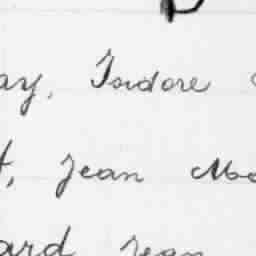 ay, Isidore
t, Jean Mo
ard Jean